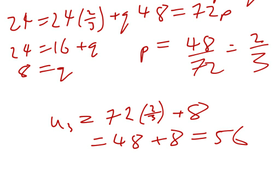 24 = 24(2/3) + q  48 = 72p
24 = 16 + q  p = 48/72 = 2/3
8 = q
u₃ = 72(2/3) + 8
= 48 + 8 = 56